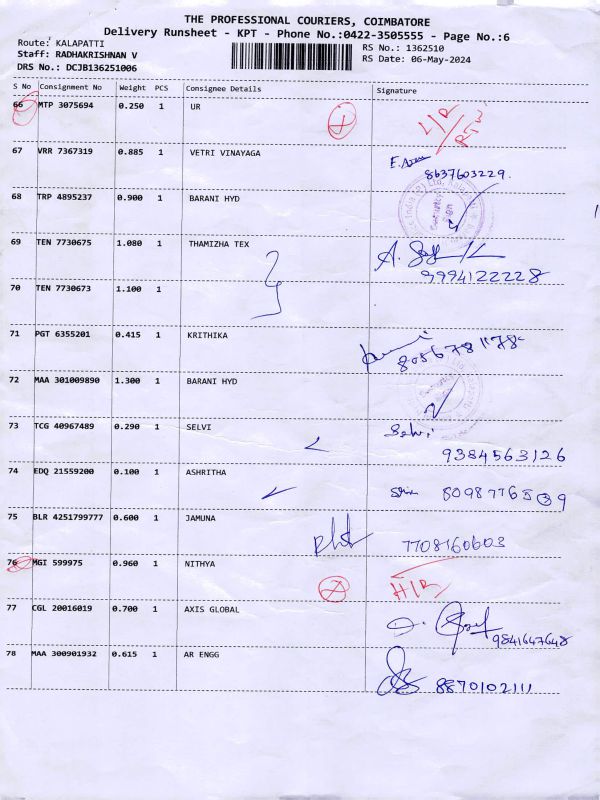 THE PROFESSIONAL COURIERS, COIMBATORE
Delivery Runsheet - KPT - Phone No.:0422-3505555 - Page No.:6
Route: KALAPATTI
RS No.: 1362510
Staff: RADHAKRISHNAN V
RS Date: 06-May-2024
DRS No.: DCJB136251006
S No Consignment No Weight PCS Consignee Details Signature
66 MTP 3075694 0.250 1 UR
67 VRR 7367319 0.885 1 VETRI VINAYAGA
8637603229.
68 TRP 4895237 0.900 1 BARANI HYD
69 TEN 7730675 1.080 1 THAMIZHA TEX
9994122228
70 TEN 7730673 1.100 1
71 PGT 6355201 0.415 1 KRITHIKA
8056781178
72 MAA 301009890 1.300 1 BARANI HYD
73 TCG 40967489 0.290 1 SELVI Selvi
9384563126
74 EDQ 21559200 0.100 1 ASHRITHA
75 BLR 4251799777 0.600 1 JAMUNA
7708160603
76 MGI 599975 0.960 1 NITHYA
77 CGL 20016019 0.700 1 AXIS GLOBAL
9841647648
78 MAA 300901932 0.615 1 AR ENGG
8870102111